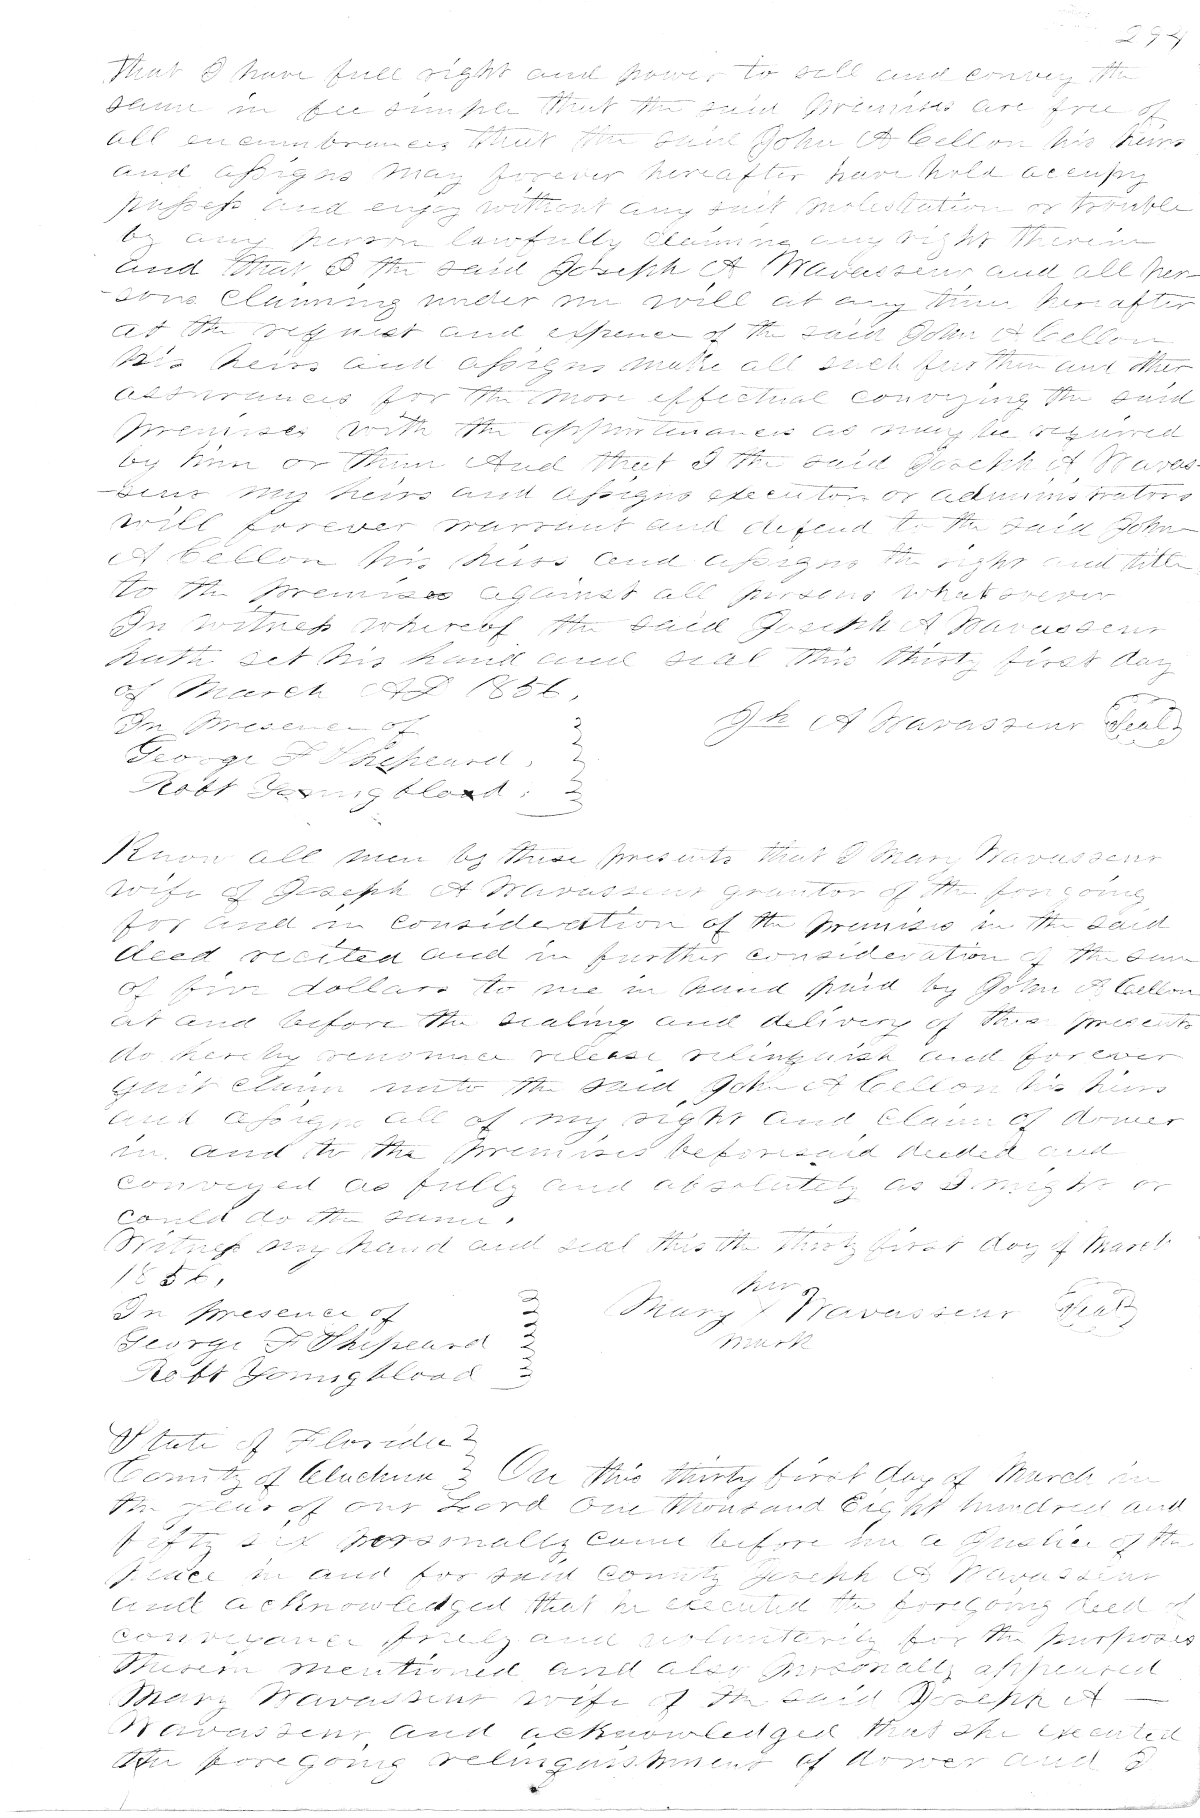 294
that I have full right and power to sell and convey the
same in fee simple that the said premises are free of
all encumbrances that the said John A Cellon his heirs
and assigns may forever hereafter have hold occupy
possess and enjoy without any suit molestation or trouble
by any person lawfully claiming any right therein
and that I the said Joseph A Wavasseur and all per-
-sons claiming under me will at any time hereafter
at the request and expence of the said John A Cellon
his heirs and assigns make all such further and other
assurances for the more effectual conveying the said
premises with the appurtenances as may be required
by him or them And that I the said Joseph A Wavas-
-seur my heirs and assigns executors or administrators
will forever warrant and defend to the said John
A Cellon his heirs and assigns the right and title
to the premises against all persons whatsoever
In witness whereof the said Joseph A Wavasseur
hath set his hand and seal this thirty first day
of March AD 1856.
In presence of
Jh A Wavasseur Seal
George F Shepeard.
Robt Youngblood.
Know all men by these presents that I Mary Wavasseur
wife of Joseph A Wavasseur grantor of the forgoing
for and in consideration of the premises in the said
deed recited and in further consideration of the sum
of five dollars to me in hand paid by John A Cellon
at and before the sealing and delivery of this presents
do hereby renounce release relinquish and forever
quit claim unto the said John A Cellon his heirs
and assigns all of my right and claim of dower
in and to the premises beforesaid deeded and
conveyed as fully and absolutely as I might or
could do the same.
Witness my hand and seal this the thirty first day of March
1856.
her
In presence of
Mary X Wavasseur Seal
mark
George F Shepeard
Robt Youngblood
State of Florida
County of Alachua On this thirty first day of March in
the year of our Lord One thousand Eight hundred and
fifty six personally came before me a Justice of the
peace in and for said county Joseph A Wavasseur
and acknowledged that he executed the foregoing deed of
conveyance freely and voluntarily for the purposes
therein mentioned and also personally appeared
Mary Wavasseur wife of the said Joseph A —
Wavasseur and acknowledged that she executed
the foregoing relinquishment of dower and I